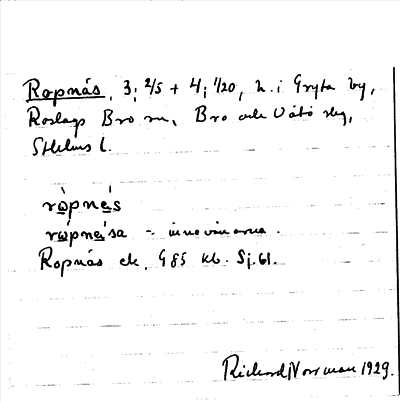 Ropnäs, 3; 2/5 + 4; 1/20, h. i Gryta by,
Roslags Bro sn, Bro och Vätö skg,
Sthlms l.
ròpnä̀s
rópnä́sa - innevånarna.
Ropnäs ek. 985 kb. Sj.61.
Richard Norrman 1929.